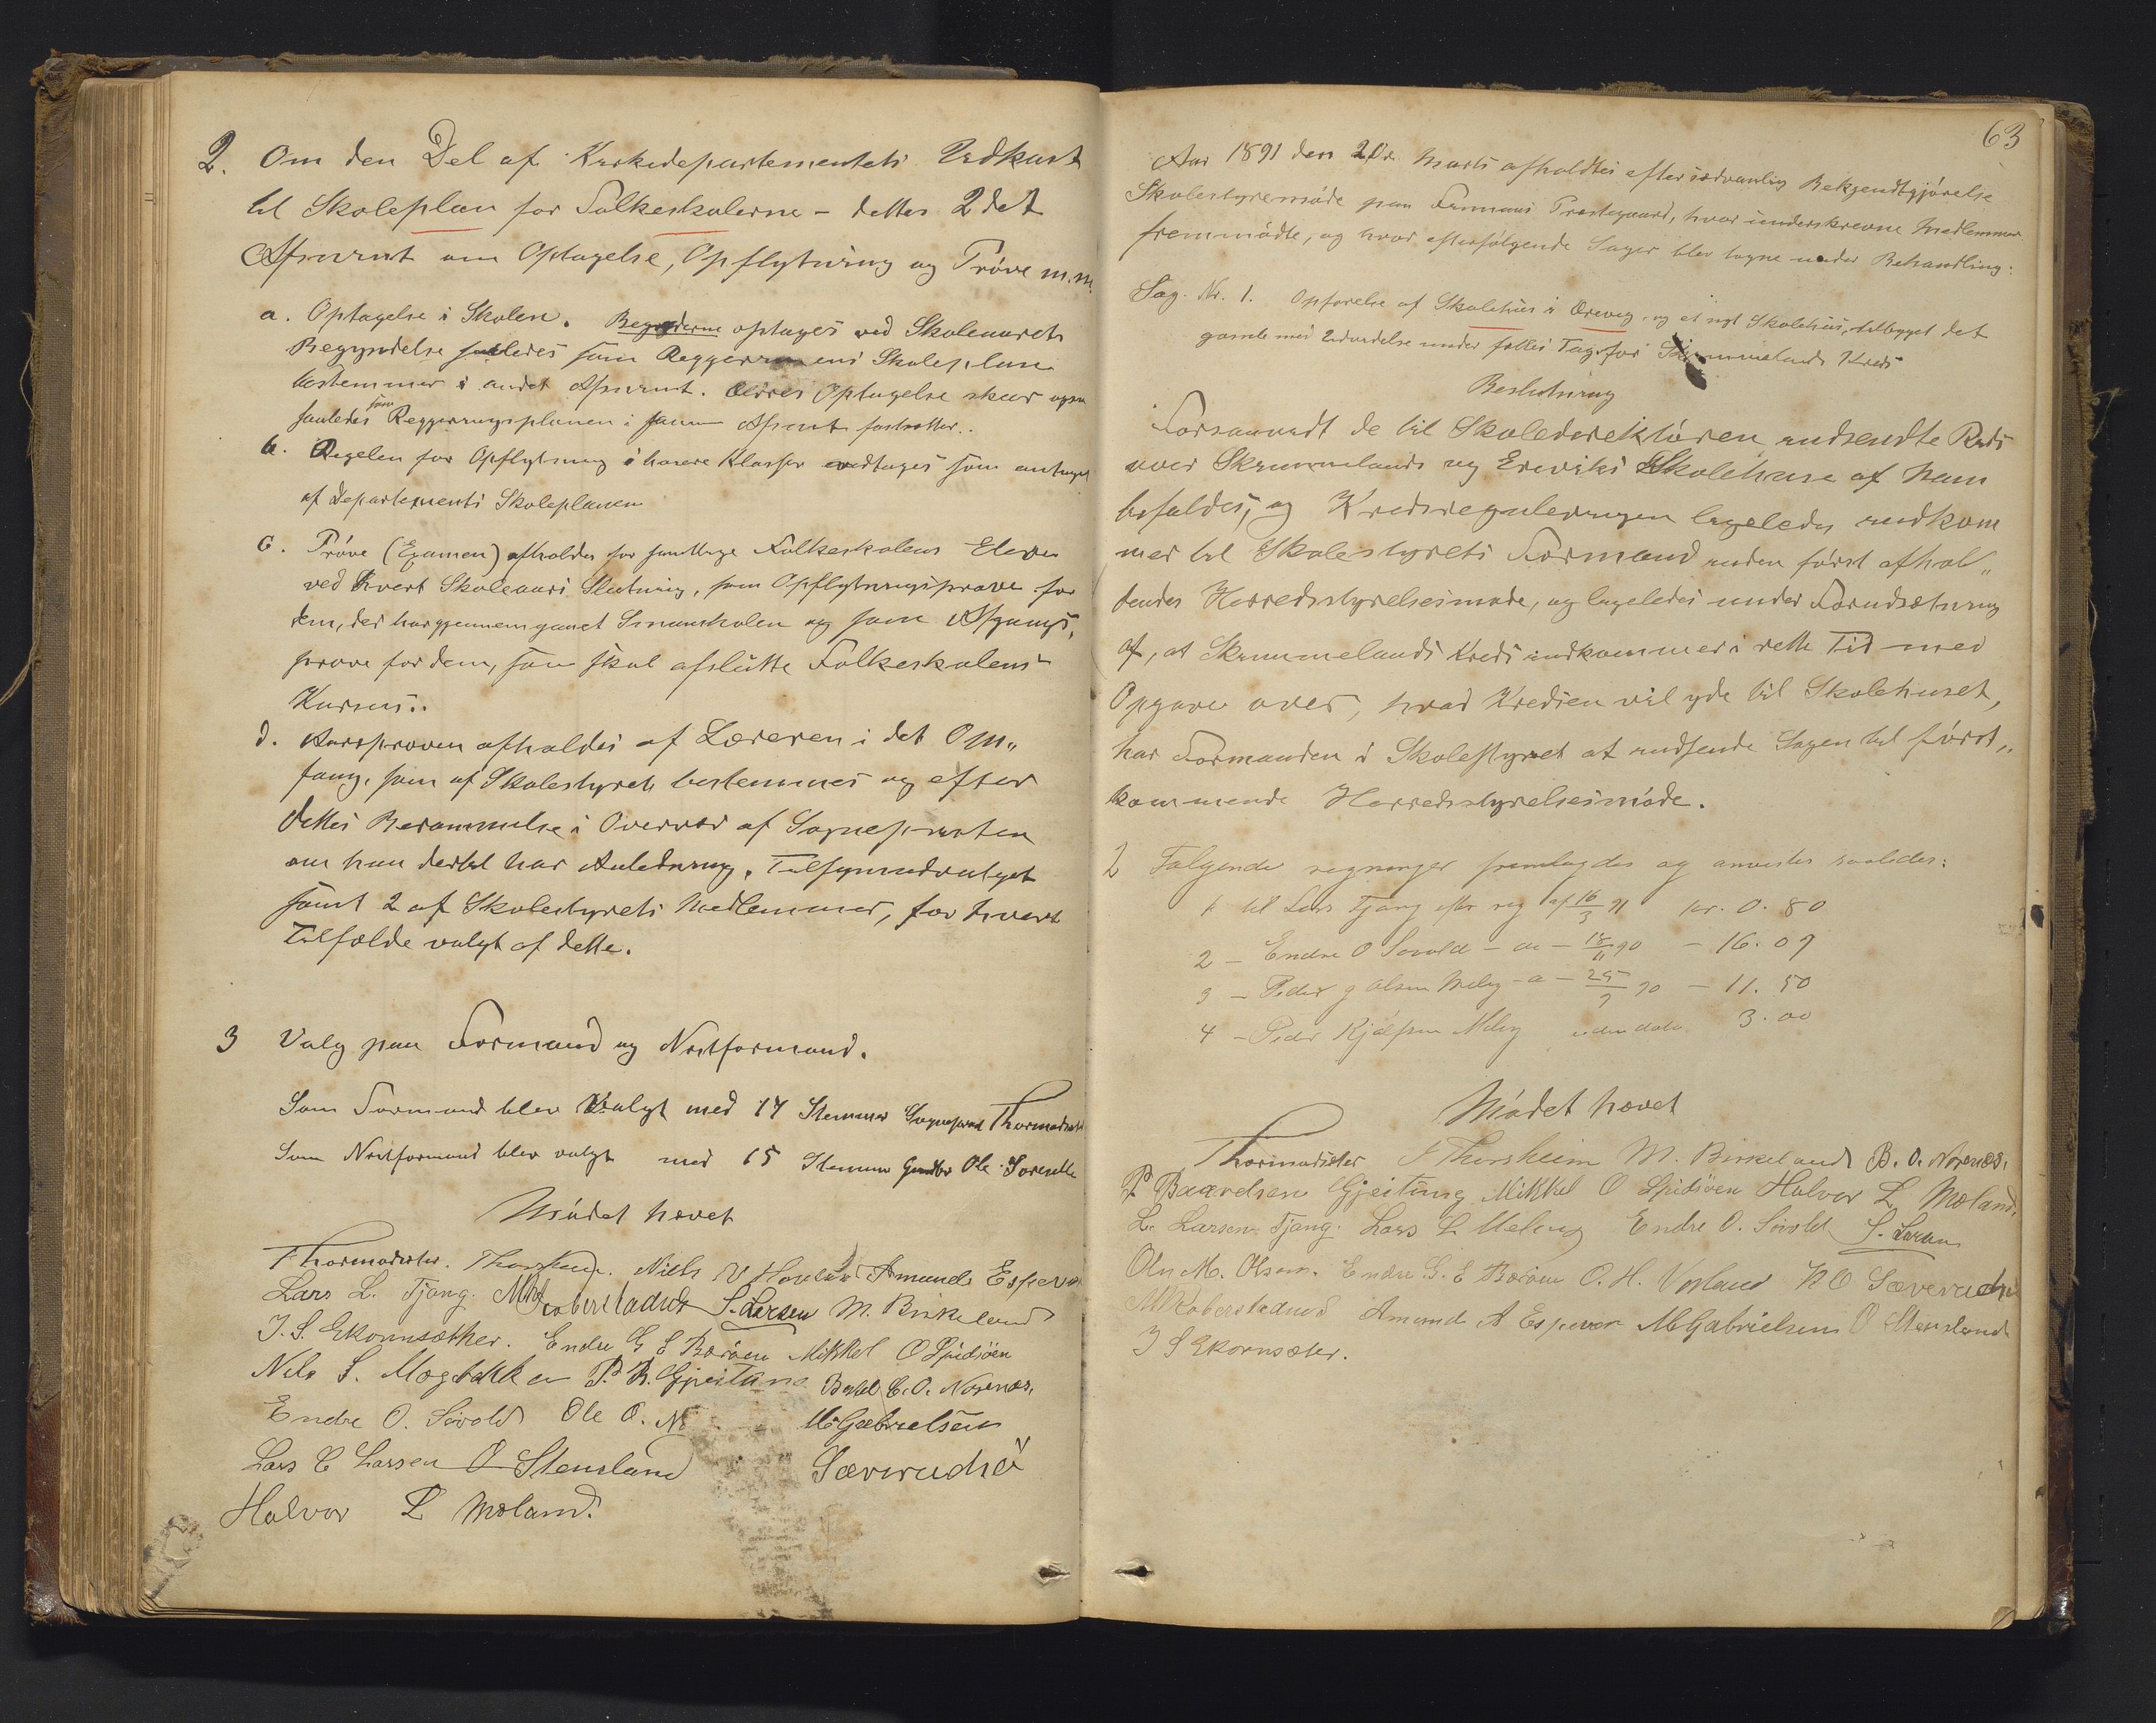 2. Om den Del af Kirkedepartementets Udkast
til Skoleplan for Folkeskolerne – dettes 2det
Afsnit om Optagelse, Opflytning og Prøve m.m.
a. Optagelse i Skolen. Begynderne optages ved Skoleaarets
Begyndelse saaledes som Skoleplan
bestemmer i andet Afsnit. Optagelse sker ogsaa
saaledes som Reggjeringsplanen i samme Afsnit fastsetter.
b. Regelen for Opflytning i høiere Klasser vedtages som antaget
af Departements Skoleplanen
c. Prøve (Examen) afholdes for samtlige Folkeskolens Elever
ved hvert Skoleaars Slutning, som Opflytningsprøve for
dem, der har gjennemgaaet Smaaskolen og som Afgangs,
prøve for dem, som skal afslutte Folkeskolens
Kursus.
d. Aarsprøven afholdes af Læreren i det Om„
fang, som af Skolestyret bestemmes og efter
dettes Berammelse i Overvær af Sognepresten
om han dertil har Anledning, Tilsynsudvalget
samt 2 af Skolestyrets Medlemmer, for hvert
Tilfælde valgt af dette.
3 Valg paa Formand og Næstformand.
Som Formand blev Valgt med 14 Stemmer Sogneprest Thormodsæter
Som Næstformand blev valgt med 15 Stemmer Ole
Mødet hævet
Thormodsæter. Niels Amund Espevær
Lars L. Tjong. S. Larsen M. Birkeland
J. S. Ekornsæther. Endre G E Børøen Mikkel O Spidsøen
Nils S. Mogbakken P. B. Gjeitung B. O. Nornes.
Endre O. Sivold Ole O. M Gabrielsen
Lars Larsen O Stensland Sæverudsø
Halvor L Moland.
63
Aar 1891 den 20de Marts afholdtes efter sædvanlig Bekjendtgjørelse
Skolestyremøde paa Finnaas Prestegaard, hvor underskrevne Medlemmer
fremmødte, og hvor efterfølgende Sager blev tagne under Behandling:
Sag. Nr. 1. Opførelse af Skolehus i og et nyt Skolehus, tilbygget det
gamle med Udvidelse under fælles Tag for Skimmelands Kreds
Beslutning
Forsaavidt de til Skoledirektøren indsendte Rids
over Skimmelands og Ereviks Skolehuse af ham
befaldes, og Kredsreguleringen ligeledes indkom
mer til Skolestyrets Formand inden først afhol„
dendes Herredsstyrelsesmøde, og ligeledes under Forudsætning
af, at Skimmelands Kreds indkommer i rette Tid med
Opgave over, hvad Kredsen vil yde til Skolehuset,
har Formanden i Skolestyret at indsende Sagen til først„
kommende Herredsstyrelsesmøde.
2 Følgende regninger fremlagdes og anvistes saaledes:
1 til Lars Tjong efter reg af 16/3 91 kr. 0. 80
2 – Endre O Sivold – do – 18/11 90 – 16. 09
3 – Peder J Olsen Meling – do – 25/9 90 – 11. 50
4 – Peder Meling uden dato 3. 00
Mødet hævet
Thormodsæter J Thorsheim M. Birkeland B. O. Nornes.
P Baardsen Gjeitung Mikkel O Spidsøen Halvor L Moland.
L. Larsen Tjong. Lars L Meling Endre O. Sivold S. Larsen
Ole M. Olsen. Endre G. E Børøen O. H. Vorland N O Sæverudsø
M Koberstadvod Amund A Espevær M Gabrielsen O Stensland
J S Ekornsæter.